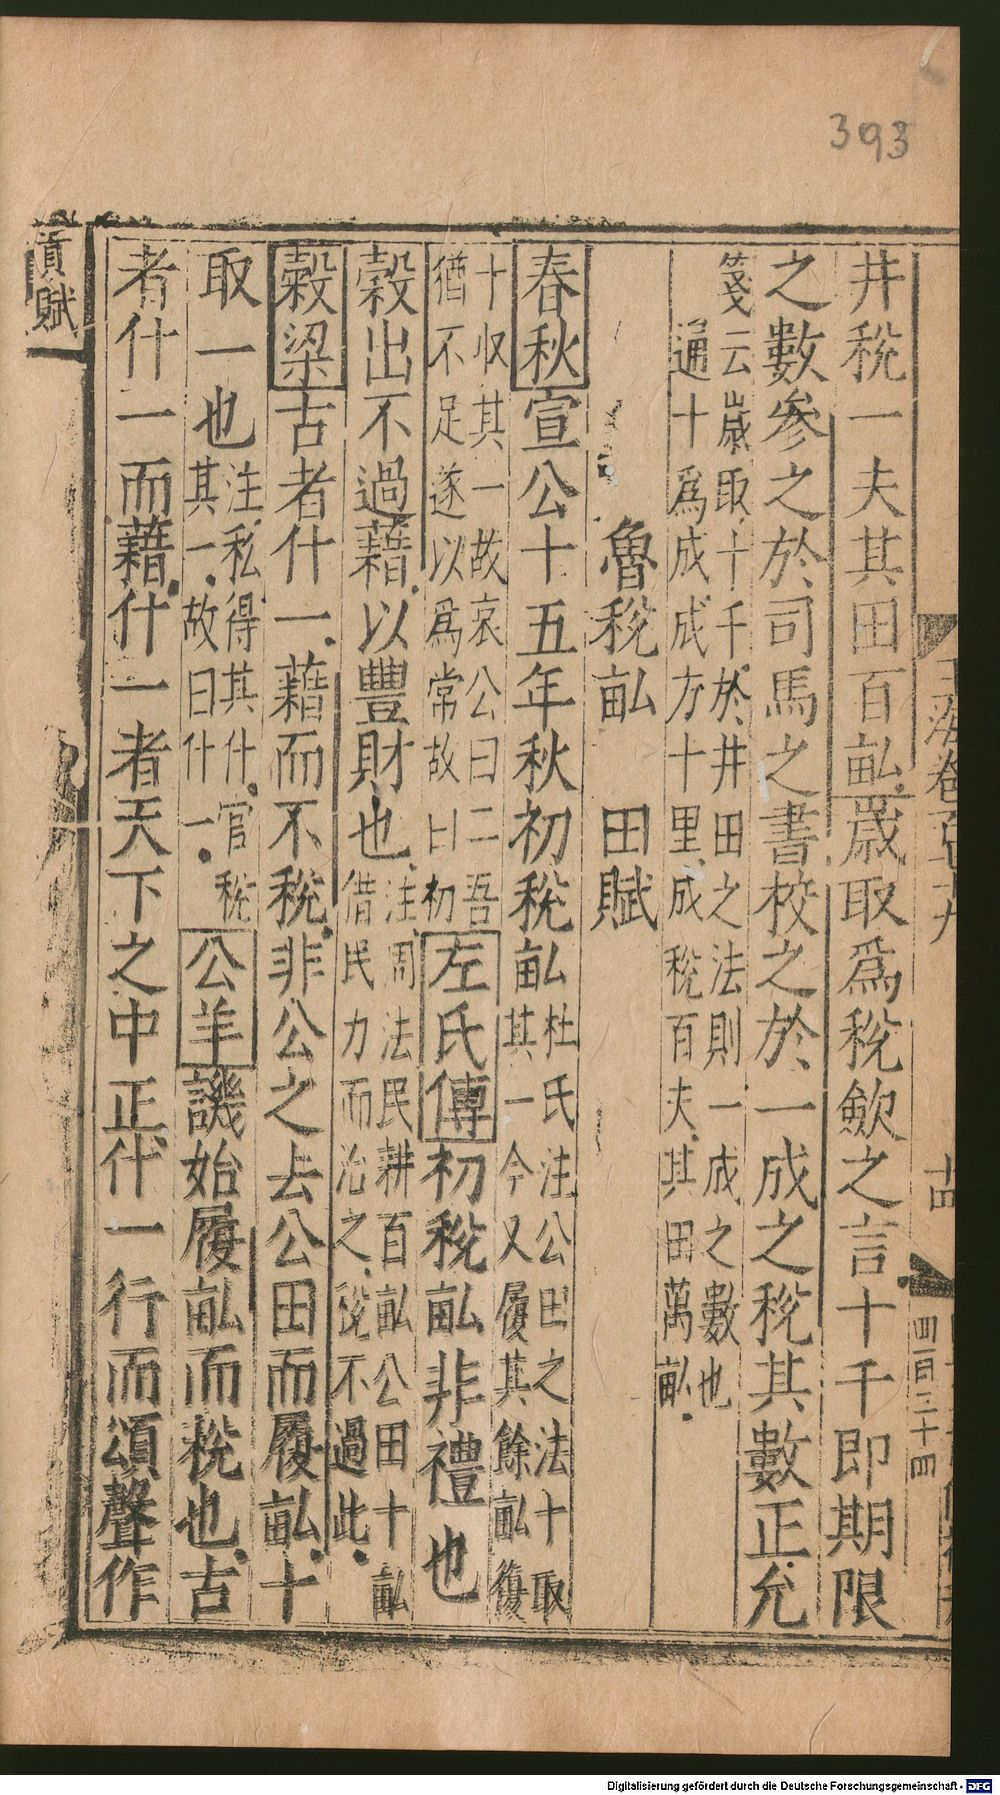 393
井稅一夫其田百畝歲取爲稅斂之言十千即期限
之數參之於司馬之書校之於一成之稅其數正允
箋云歲取十千於井田之法則一成之數也
通十爲成成方十里成稅百夫其田萬畝
魯稅畝 田賦
春秋宣公十五年秋初稅畝
杜氏注公田之法十取
其一今又履其餘畝復
十收其一故哀公曰二吾
猶不足遂以爲常故曰初
左氏傳初稅畝非禮也
穀出不過藉以豐財也
注周法民耕百畝公田十畝
借民力而治之稅不過此
穀梁古者什一藉而不稅非公之去公田而履畝十
取一也
注私得其什官稅
其一故曰什一
公羊譏始履畝而稅也古
者什一而藉什一者天下之中正什一行而頌聲作
貢賦
玉海卷百
四百三十四
Digitalisierung gefördert durch die Deutsche Forschungsgemeinschaft - DFG